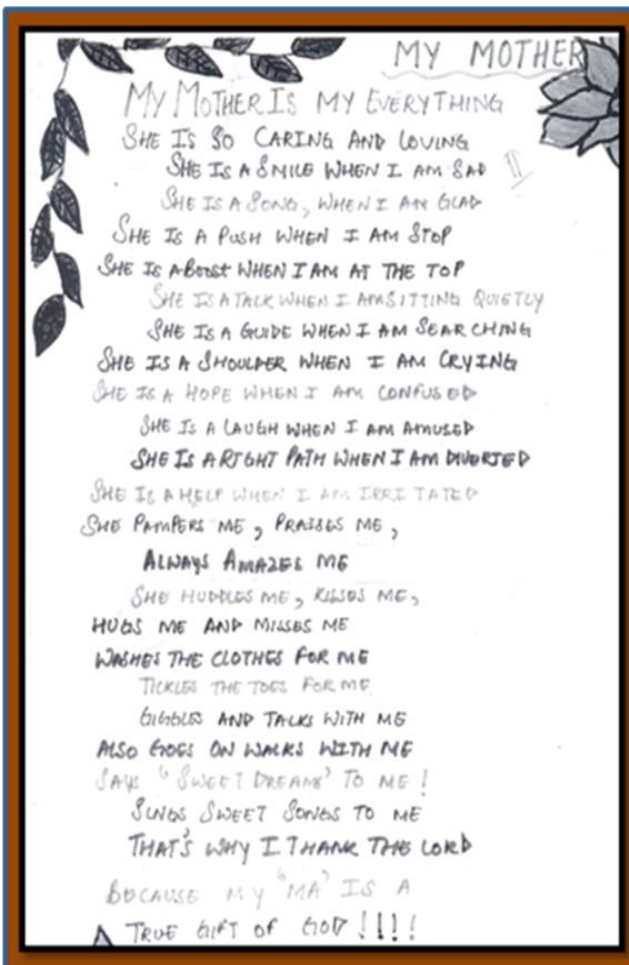 MY MOTHER
MY MOTHER IS MY EVERYTHING
SHE IS SO CARING AND LOVING
SHE IS A SMILE WHEN I AM SAD
SHE IS A SONG, WHEN I AM GLAD
SHE IS A PUSH WHEN I AM STOP
SHE IS A BOOST WHEN I AM AT THE TOP
SHE IS A TALK WHEN I AM SITTING QUIETLY
SHE IS A GUIDE WHEN I AM SEARCHING
SHE IS A SHOULDER WHEN I AM CRYING
SHE IS A HOPE WHEN I AM CONFUSED
SHE IS A LAUGH WHEN I AM AMUSED
SHE IS A RIGHT PATH WHEN I AM DIVERTED
SHE IS A HELP WHEN I AM IRRITATED
SHE PAMPERS ME, PRAISES ME,
ALWAYS AMAZES ME
SHE HUDDLES ME, KISSES ME,
HUGS ME AND MISSES ME
WASHES THE CLOTHES FOR ME
TICKLES THE TOES FOR ME
GIGGLES AND TALKS WITH ME
ALSO GOES ON WALKS WITH ME
SAYS "SWEET DREAMS' TO ME!
SINGS SWEET SONGS TO ME
THAT'S WHY I THANK THE LORD
BECAUSE MY 'MA' IS A
TRUE GIFT OF GOD !!!!